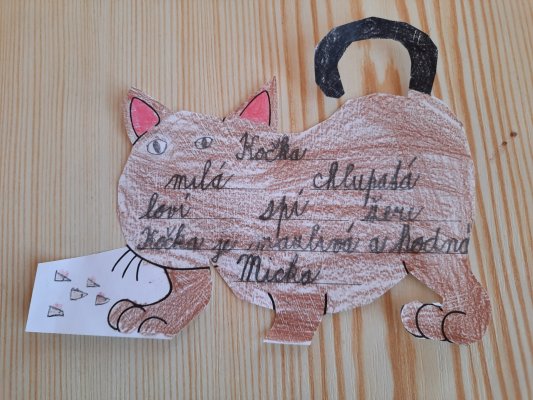 Kočka
milá chlupatá
loví spí žere
Kočka je mazlivá a hodná
Micka